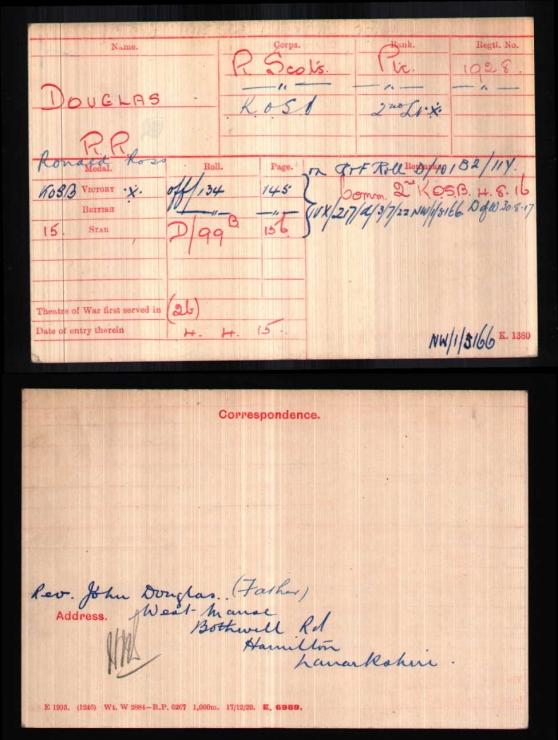 Name. Corps. Rank. Regtl. No.
DOUGLAS R Scots. Pte. 1928.
R.R. — " — — " — — " —
Ronald Ross K.O.S.B 2nd Lt. X.
Medal. Roll. Page. Remarks.
on
KOSB VICTORY X. Off/134 145
BRITISH — " — — " —
Comm. 2nd KOSB. 4.8.16
NW/1/5166 D of W 30.8.17
15. STAR D/99 B 156
Theatre of War first served in (2b)
Date of entry therein 4. 4. 15.
NW/1/5166 K. 1380
Correspondence.
Rev. John Douglas. (Father)
Address. West Manse
Bothwell Rd
Hamilton
Lanarkshire.
E 1935. (1240) Wt. W 2884—R.P. 6267 1,000m. 17/12/20. E. 6989.